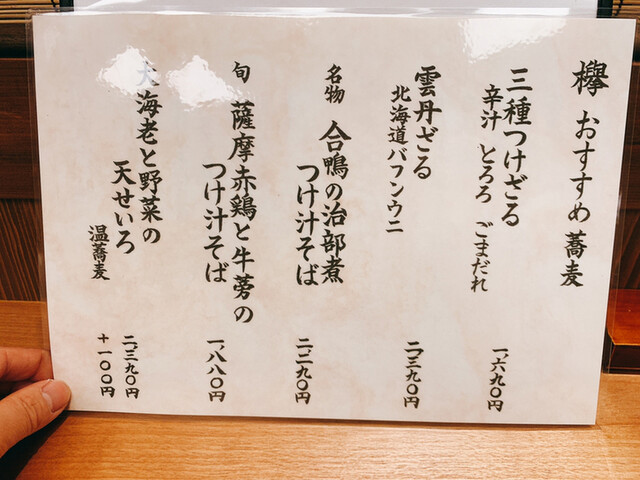 欅 おすすめ蕎麦
三種つけざる
辛汁 とろろ ごまだれ
一、六九〇円
雲丹ざる
北海道バフンウニ
二、三九〇円
名物 合鴨の治部煮
つけ汁そば
二、二九〇円
旬 薩摩赤鶏と牛蒡の
つけ汁そば
一、八八〇円
大海老と野菜の
天せいろ
温蕎麦
二、三九〇円
+一〇〇円